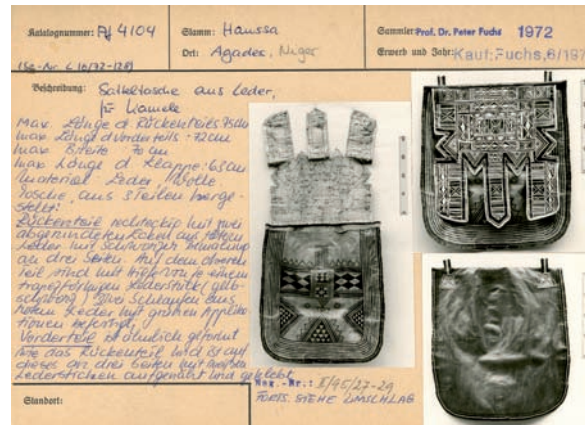 Katalognummer: Af 4104
(Sg.-Nr. C 16/72-128)
Stamm: Haussa
Ort: Agades, Niger
Sammler: Prof. Dr. Peter Fuchs 1972
Erwerb und Jahr: Kauf: Fuchs, 6/197
Beschreibung: Satteltasche aus Leder,
für Kamele
Max. Länge d. Rückenteils: 75cm
max. Länge d. Vorderteils: 72cm
max. Breite: 70 cm
max. Länge d. Klappe: 63cm
Material: Leder, Wolle
Tasche, aus 3 Teilen herge-
stellt:
Rückenteil rechteckig mit zwei
abgerundeten Ecken aus rotem
Leder mit schwarzer Bemalung
an drei Seiten. Auf dem oberen
Teil sind mit Hilfe von je einem
trapezförmigen Lederstück (gelb-
schwarz) zwei Schlaufen aus
rotem Leder mit grünen Applika-
tionen befestigt.
Vorderteil ist ähnlich geformt
wie das Rückenteil und ist auf
dieses an drei Seiten mit großen
Lederstichen aufgenäht und geklebt.
Neg.-Nr.: II/95/27-29
FORTS. SIEHE UMSCHLAG
Standort: